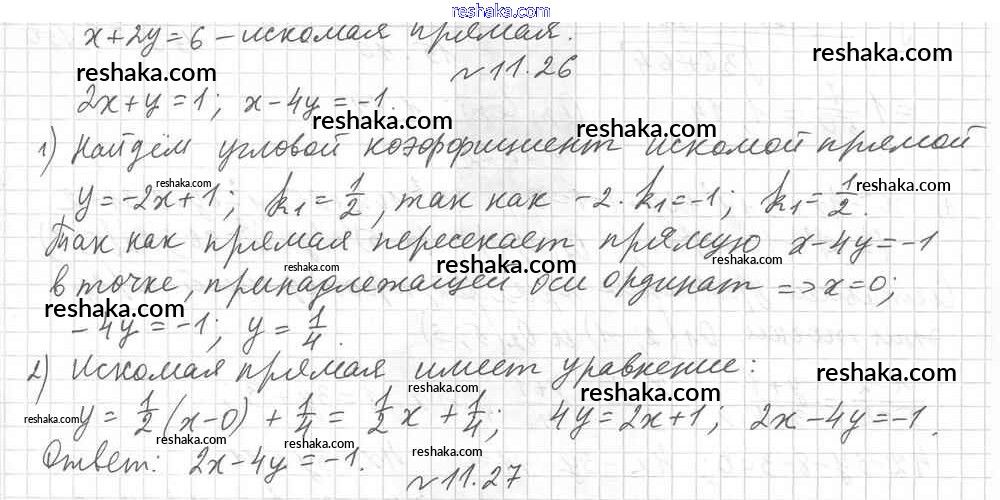 reshaka.com
x+2y=6 – искомая прямая.
№11.26
reshaka.com
reshaka.com
2x+y=1; x-4y=-1.
reshaka.com
reshaka.com
1) Найдём угловой коэффициент искомой прямой
reshaka.com
reshaka.com
y=-2x+1; k₁=1/2, так как -2·k₁=-1; k₁=1/2.
Так как прямая пересекает прямую x-4y=-1
reshaka.com
reshaka.com
reshaka.com
в точке, принадлежащей оси ординат => x=0;
reshaka.com
-4y=-1; y=1/4.
2) Искомая прямая имеет уравнение:
reshaka.com
reshaka.com
reshaka.com
reshaka.com
y=1/2(x-0)+1/4=1/2x+1/4; 4y=2x+1; 2x-4y=-1.
reshaka.com
reshaka.com
Ответ: 2x-4y=-1.
№11.27